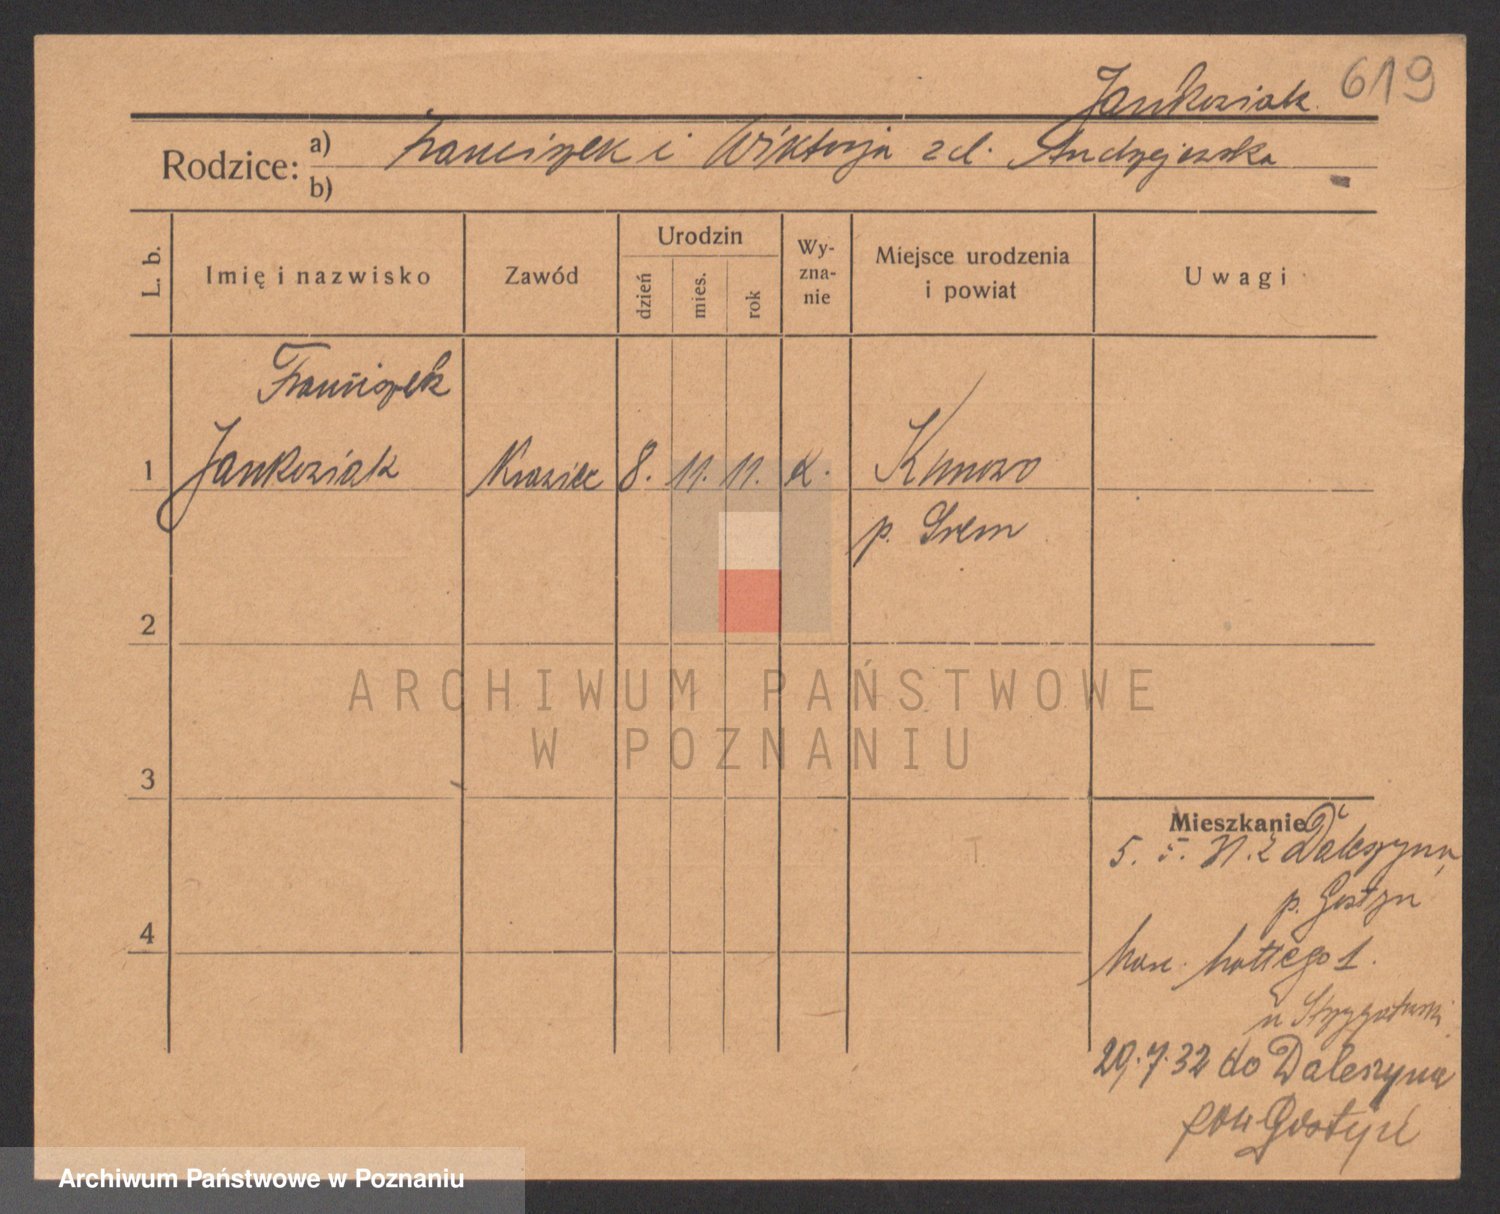 619
Jankowiak
Rodzice:
a) Franciszek i Wiktorja z d. Andrzejewska
b)
L. b.
Imię i nazwisko
Zawód
Urodzin
dzień
mies.
rok
Wy-
zna-
nie
Miejsce urodzenia
i powiat
Uwagi
Franciszek
1 Jankowiak Krawiec 8. 11. 11. k. Kunowo
p. Śrem
2
3
4
Mieszkanie
5. 5. 31. z Daleszyna,
p. Gostyń
1.
u
29.7.32 do Daleszyna
pow Gostyń
ARCHIWUM PAŃSTWOWE
W POZNANIU
Archiwum Państwowe w Poznaniu